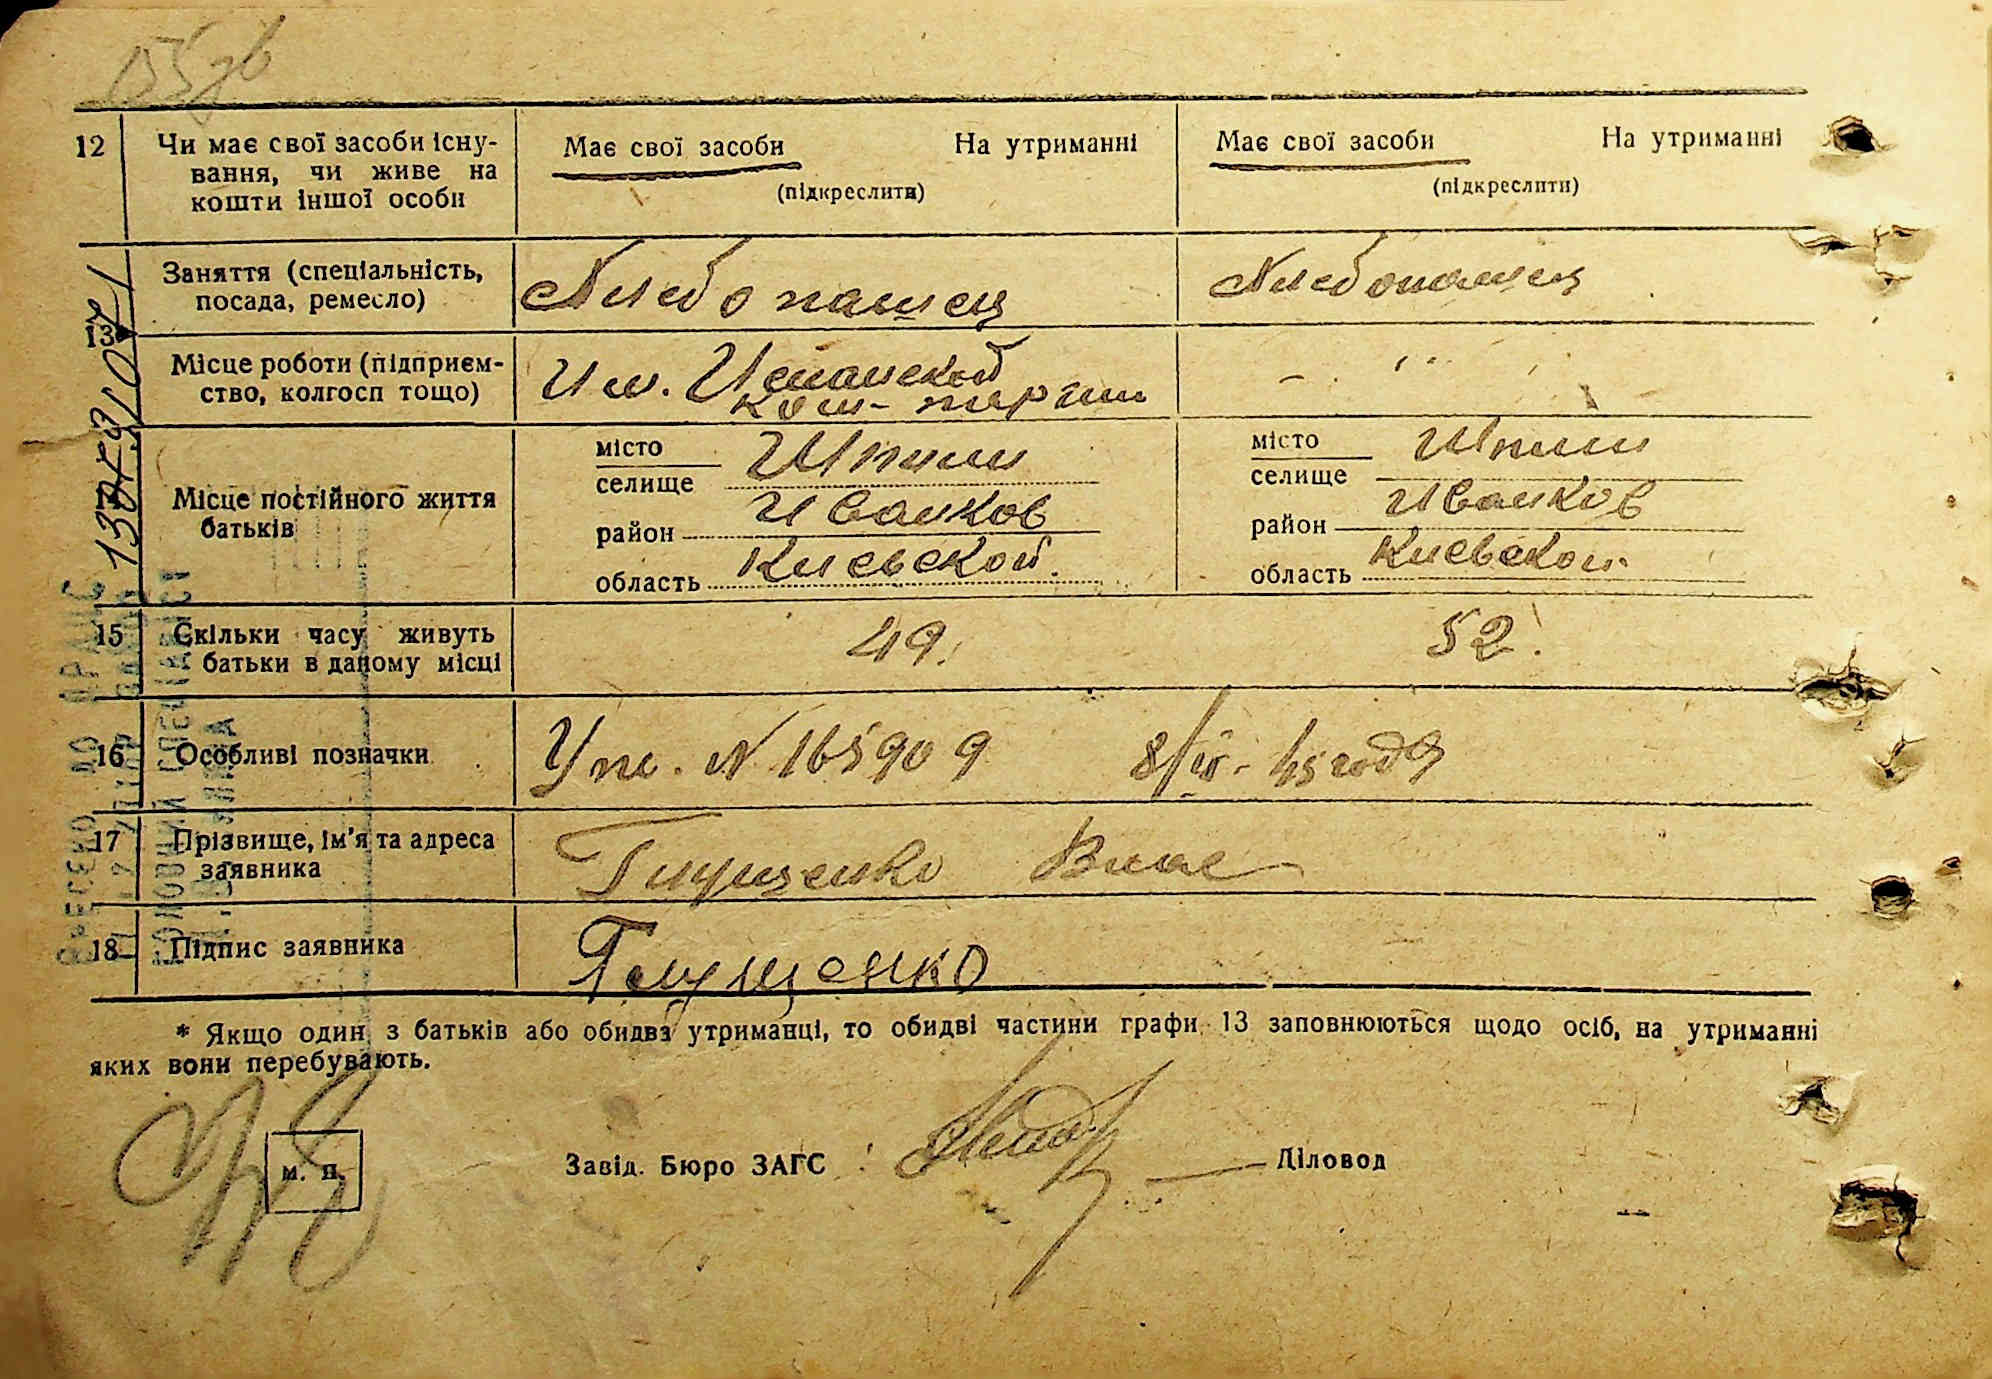 12 Чи має свої засоби існу-
вання, чи живе на
кошти іншої особи
Має свої засоби На утриманні
(підкреслити)
Має свої засоби На утриманні
(підкреслити)
13
Заняття (спеціальність,
посада, ремесло)
Хлебопашец
Хлебопашец
Місце роботи (підприєм-
ство, колгосп тощо)
Им. Испанской
Ком-партии
- . ' ' '
Місце постійного життя
батьків
місто
селище Шпили
район Иванков
область Киевской
місто
селище Шпили
район Иванков
область Киевской
15 Скільки часу живуть
батьки в даному місці
49.
52.
16 Особливі позначки
N 165909 45 года
17 Прізвище, ім'я та адреса
заявника
Глущенко Влас
18 Підпис заявника
Глущенко
* Якщо один з батьків або обидва утриманці, то обидві частини графи 13 заповнюються щодо осіб, на утриманні
яких вони перебувають.
м. п.
Завід. Бюро ЗАГС
Діловод